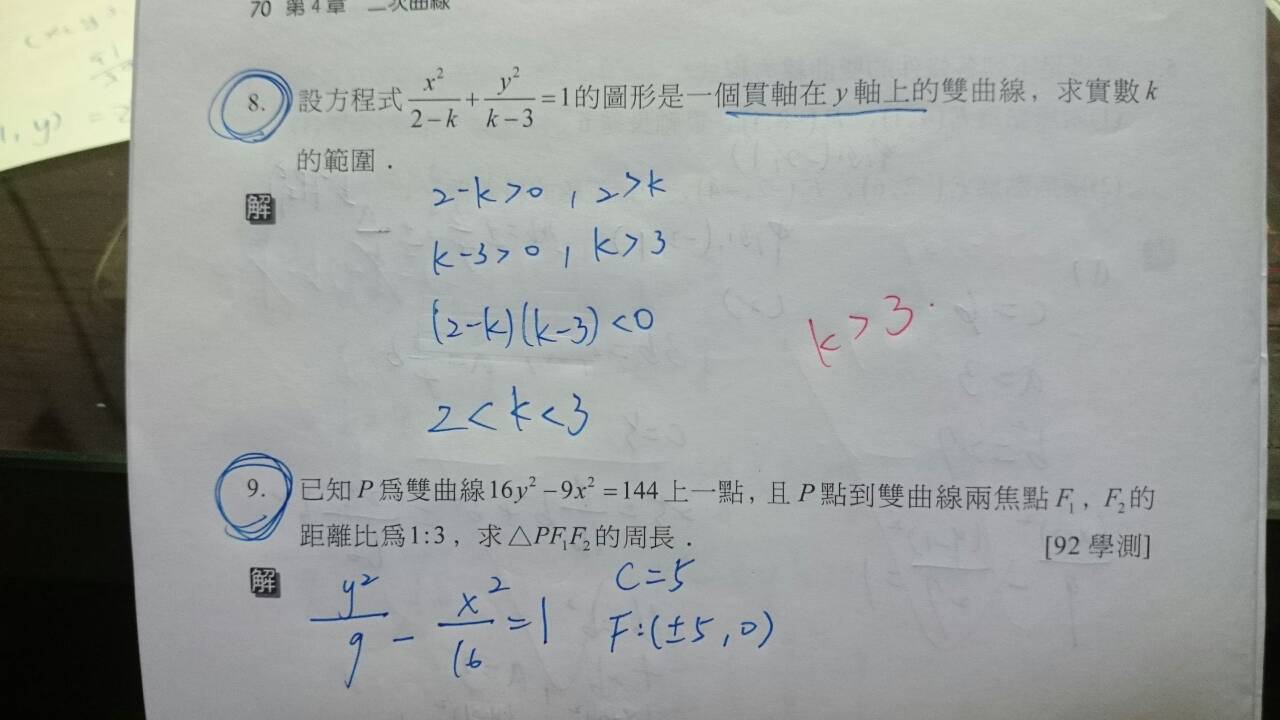 70 第4章 二次曲線
8. 設方程式 x²/(2-k) + y²/(k-3) = 1 的圖形是一個貫軸在 y 軸上的雙曲線，求實數 k
的範圍．
解
2-k>0, 2>k
k-3>0, k>3
(2-k)(k-3)<0
k>3.
2<k<3
9. 已知 P 為雙曲線 16y² - 9x² = 144 上一點，且 P 點到雙曲線兩焦點 F₁，F₂ 的
距離比為 1:3，求 △PF₁F₂ 的周長． [92 學測]
解
y²/9 - x²/16 = 1
C=5
F:(±5,0)